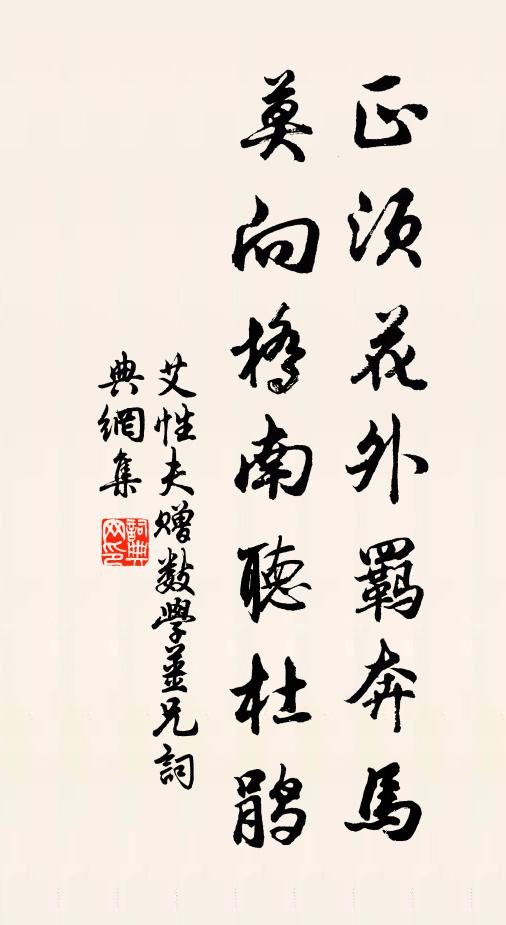 正須花外羈奔馬
莫向橋南聽杜鵑
艾性夫贈數學薑兄詞
典網集
詞典網印